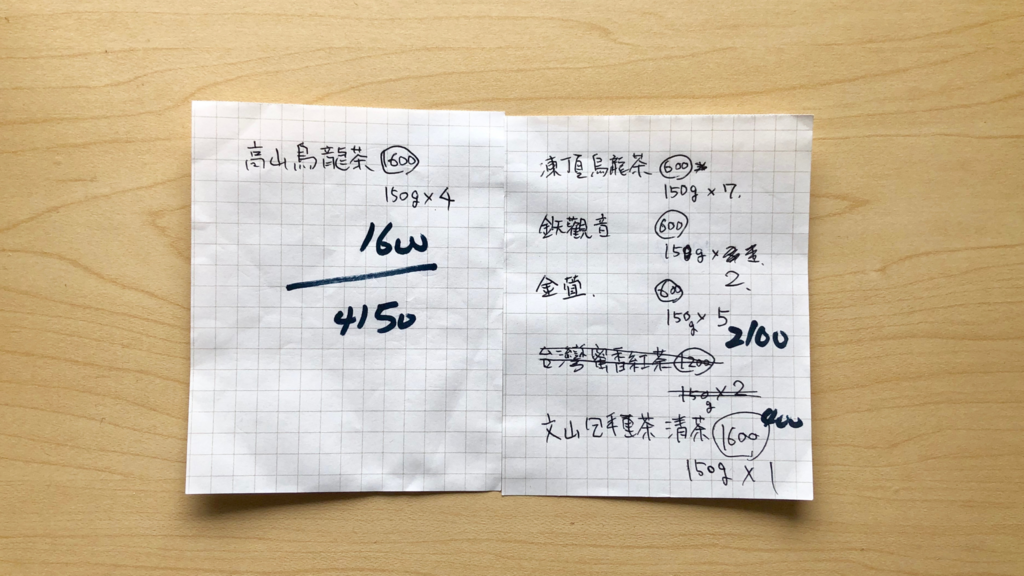 高山烏龍茶 1600
150g×4
1600
4150
凍頂烏龍茶 600
150g×7.
鉄觀音 600
150g×
2.
金萱. 600
150g×5
2100
台灣蜜香紅茶 1200
150g×2
400
文山包種茶 清茶 1600
150g×1